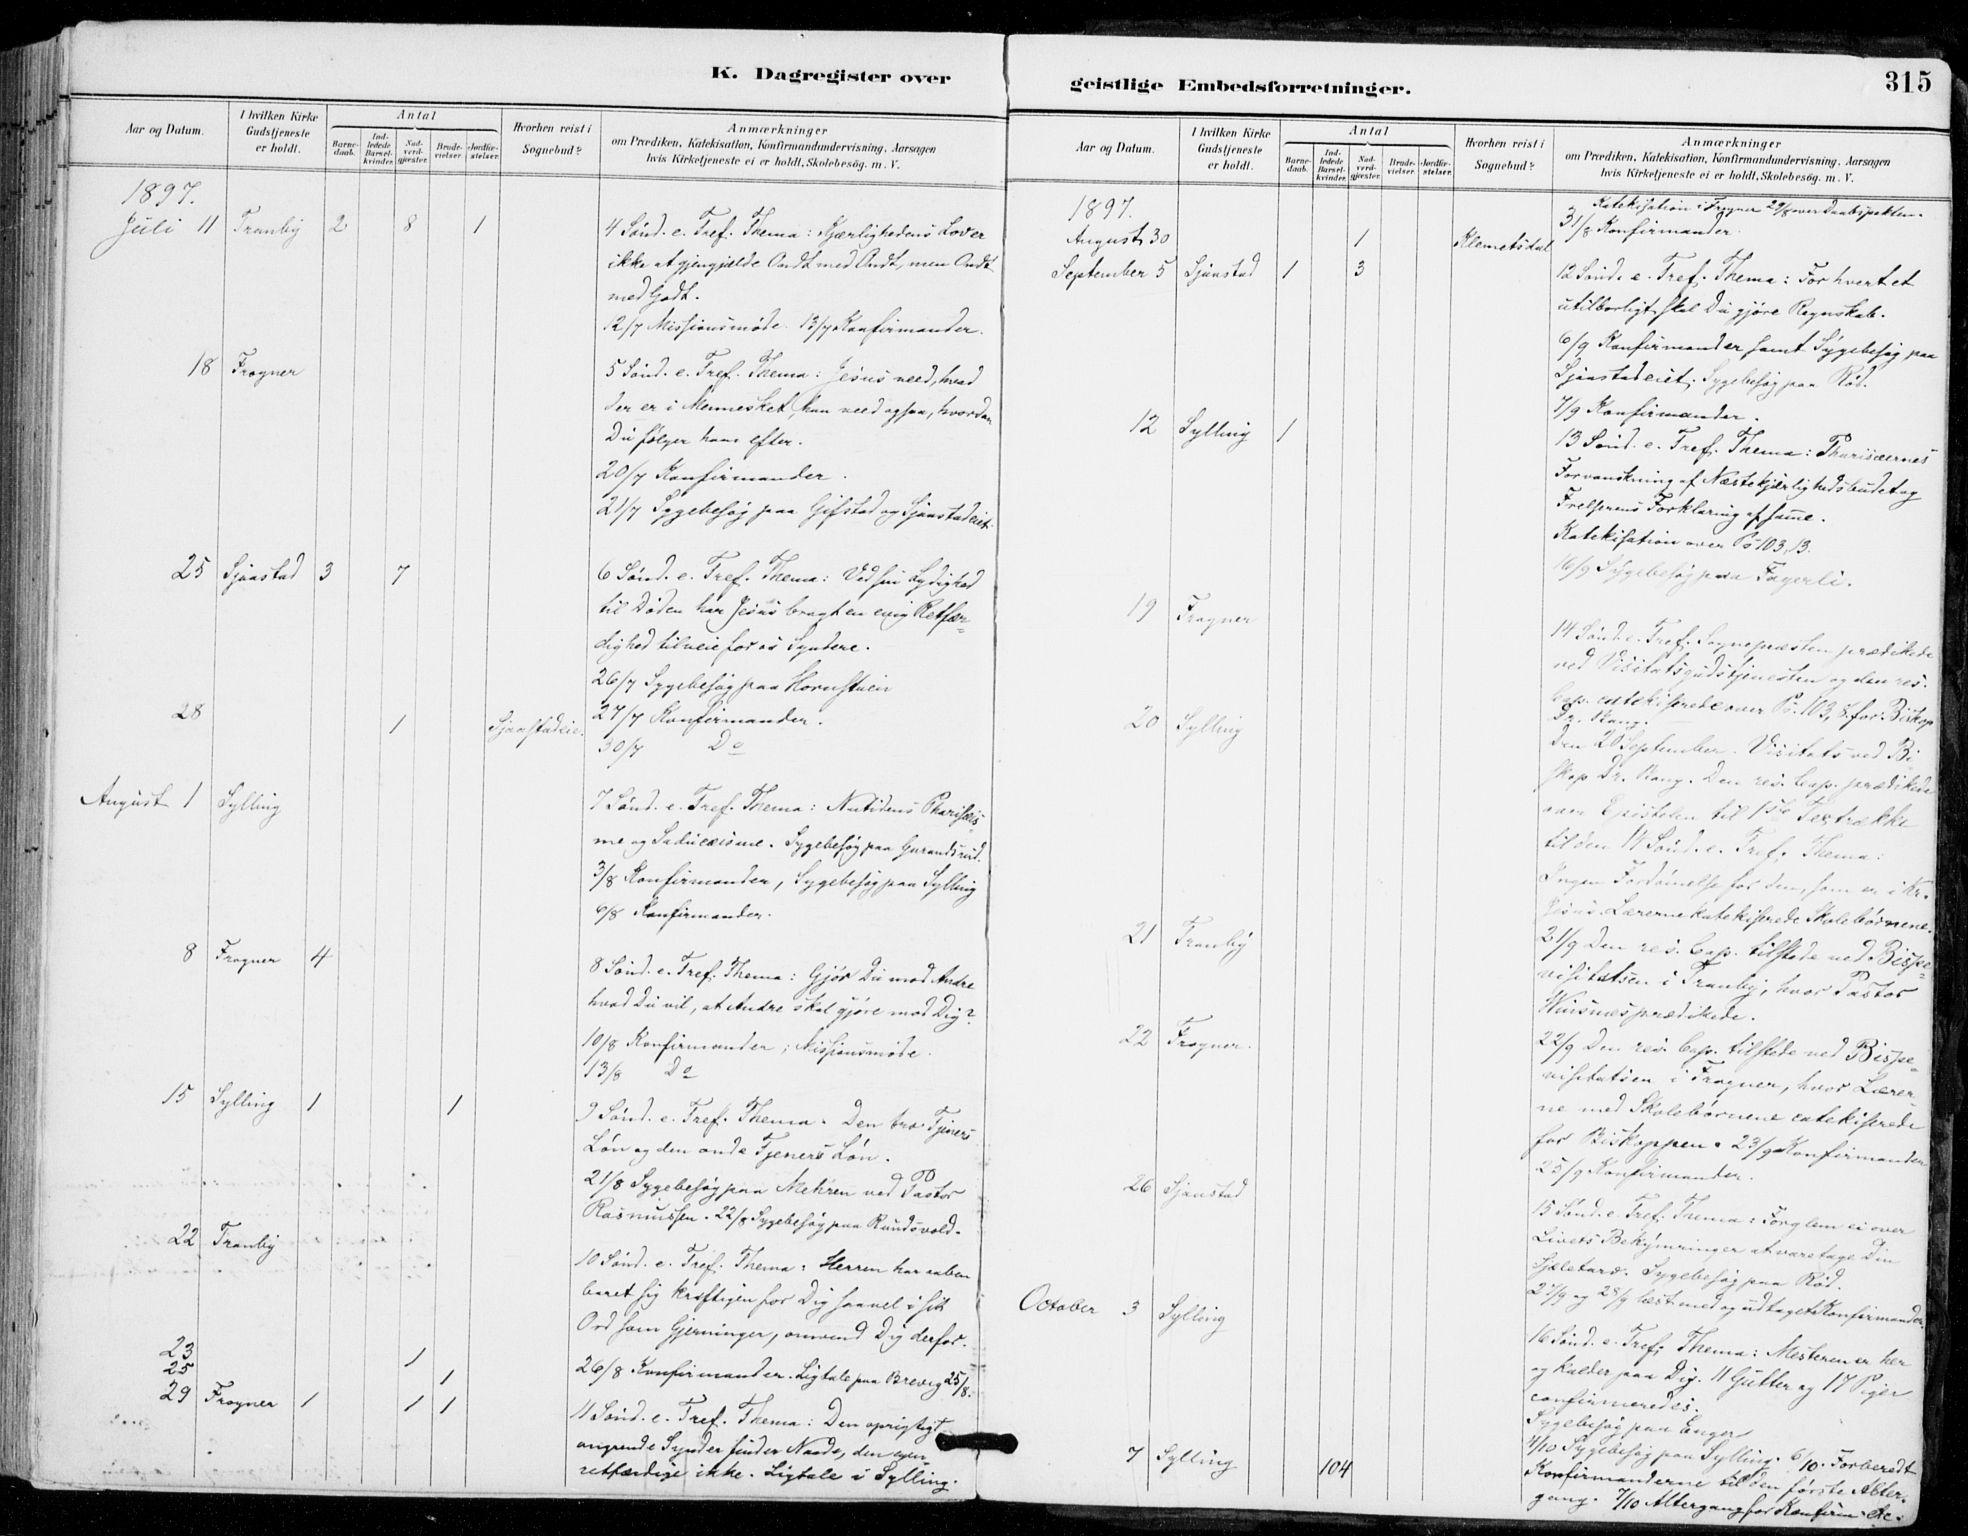 K. Dagregister over
Aar og Datum.
I hvilken Kirke Gudstjeneste er holdt.
Antal
Barnedaab.
Indledede Barselkvinder.
Nadverdgjester.
Brudevielser.
Jordfæstelser.
Hvorhen reist i Sognebud?
Anmærkninger
om Prædiken, Katekisation, Konfirmandundervisning, Aarsagen
hvis Kirketjeneste ei er holdt, Skolebesøg. m. V.
1897.
Juli 11 Tranby 2 8 1 4 Sønd. e. Tref. Thema: Kjærlighedens Lov er
ikke at gjengjelde Ondt med Ondt, men Ondt
med Godt.
12/7 Missionsmøde. 13/7 Konfirmander.
18 Frogner 5 Sønd. e. Tref. Thema: Jesus veed, hvad
der er i Mennesket, han veed ogsaa, hvordan
Du følger ham efter.
20/7 Konfirmander.
21/7 Sygebesøg paa Gifstad og Sjaastadeiet.
25 Sjaastad 3 7 6 Sønd. e. Tref. Thema: Ved sin Lydighed
til Døden har Jesus bragt en evig Retfær-
dighed tilveie for os Syndere.
26/7 Sygebesøg paa Hornstuen
28 1 Sjaastadeie. 27/7 Konfirmander.
30/7 Do
August 1 Sylling 7 Sønd. e. Tref. Thema: Nutidens Pharisæis-
me og Saducæisme. Sygebesøg paa Gurandsrud.
3/8 Konfirmander, Sygebesøg paa Sylling
6/8 Konfirmander.
8 Frogner 4 8 Sønd. e. Tref. Thema: Gjør Du mod Andre
hvad Du vil, at Andre skal gjøre mod Dig?
10/8 Konfirmander; Missionsmøde.
13/8 Do
15 Sylling 1 1 9 Sønd. e. Tref. Thema. Den tro Tjeners
Løn og den onde Tjeners Løn.
21/8 Sygebesøg paa Mehren ved Pastor
Rasmussen. 22/8 Sygebesøg paa Rundsvold.
22 Tranby 10 Sønd. e. Tref. Thema: Herren har aaben
baret sig kraftigen for Dig saavel i sit
Ord som Gjerninger, omvend Dig derfor.
23 1
25 1 26/8 Konfirmander. Ligtale paa Brevig 25/8.
29 Frogner 1 1 1 11 Sønd. e. Tref. Thema: Den oprigtigt
angrende Synder finder Naade, den egen-
retfærdige ikke. Ligtale i Sylling.
geistlige Embedsforretninger.
315
Aar og Datum.
I hvilken Kirke Gudstjeneste er holdt.
Antal
Barnedaab.
Indledede Barselkvinder.
Nadverdgjester.
Brudevielser.
Jordfæstelser.
Hvorhen reist i Sognebud?
Anmærkninger
om Prædiken, Katekisation, Konfirmandundervisning, Aarsagen
hvis Kirketjeneste ei er holdt, Skolebesøg. m. V.
1897.
Katekisation i Frogner 29/8 over Daabspakten.
August 30 1 Klemetsdal 31/8 Konfirmander.
September 5 Sjaastad 1 3 12 Sønd. e. Tref. Thema: For hvert et
utilborligt skal Du gjøre Regnskab.
6/9 Konfirmander samt Sygebesøg paa
Sjaastadeiet, Sygebesøg paa Rød.
7/9 Konfirmander.
12 Sylling 1 13 Sønd. e. Tref. Thema: Pharisæernes
Forvanskning af Næstekjærlighedsbudet og
Frelserens Forklaring af samme.
Katekisation over Ps 103, 13.
16/9 Sygebesøg paa Fagerli.
19 Frogner 14 Sønd. e. Tref. Sognepræsten prædikede
ved Visitatsgudstjenesten og den res.
Cap. catekiserede over Ps. 103, 8. for Biskop
Dr. Bang.
20 Sylling Den 20 September. Visitats ved Bi-
skop Dr. Bang. Den res. Cap. prædikede
over Epistelen til 1ste Textrække
til den 14 Sønd. e. Tref. Thema:
Ingen Fordømelse for dem, som er i Kr.
Jesus. Lærerne katekiserede Skolebørnene.
21 Tranby 21/9 Den res. Cap. tilstede ved Bispe-
visitatsen i Tranby, hvor Pastor
prædikede.
22 Frogner. 22/9 Den res. Cap. tilstede ved Bispe-
visitatsen i Frogner, hvor Lærer-
ne med Skolebørnene catekiserede
for Biskoppen. 23/9 Konfirmander
25/9 Konfirmander.
26 Sjaastad 15 Sønd. e. Tref. Thema: Forglem ei over
Livets Bekymringer at varetage Din
Sjæletarv. Sygebesøg paa Rød.
27/9 og 28/9 læst med og udtaget Konfirmander.
October 3 Sylling 16 Sønd. e. Tref. Thema: Mesteren er her
og kalder paa Dig. 11 Gutter og 17 Piger
confirmeredes.
Sygebesøg paa Enger
4/10 Sygebesøg paa Sylling. 6/10. Forberedt
7 Sylling 104 Konfirmanderne til den første Alter-
gang. 7/10 Altergang for Konfirm. &c.